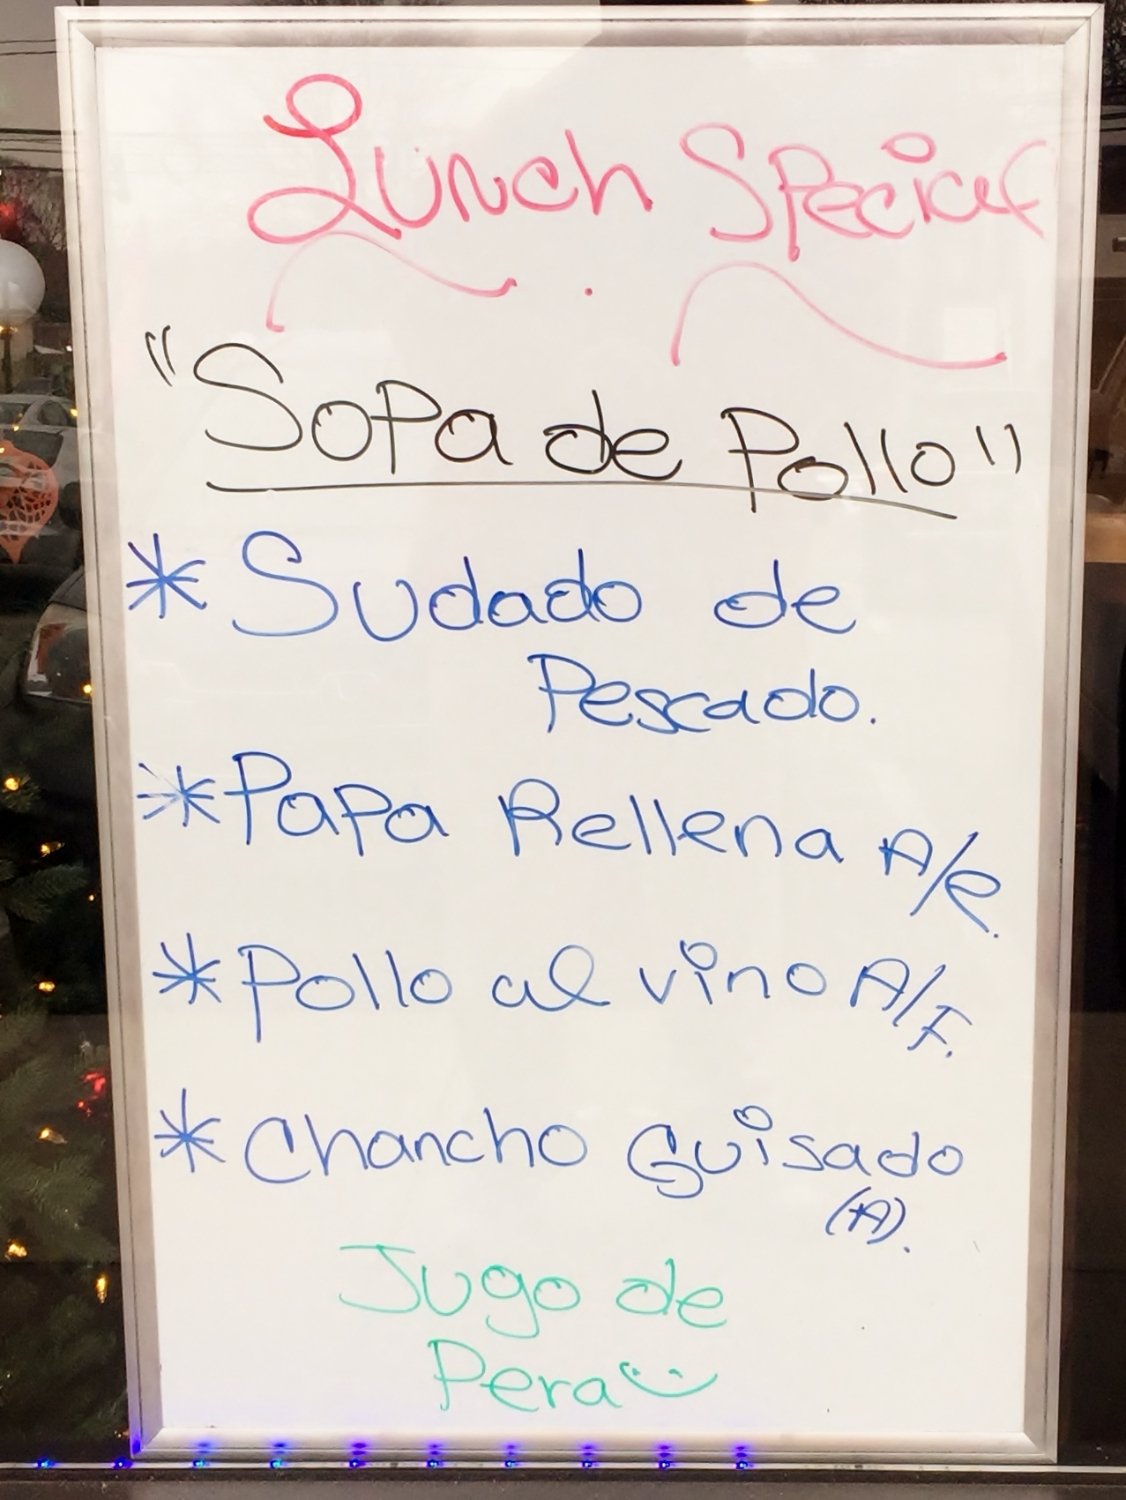 Lunch Special
"Sopa de Pollo"
* Sudado de
Pescado.
* Papa Rellena A/e.
* Pollo al vino A/F.
* Chancho Guisado
(A).
Jugo de
Pera